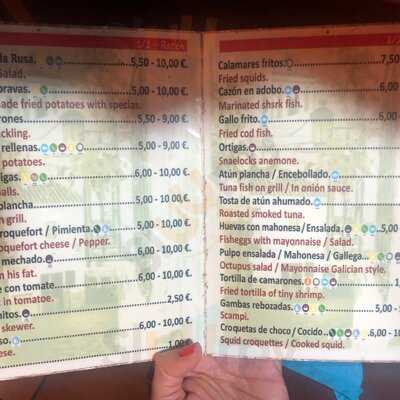 1/2 - Ración
la Rusa. 5,50 - 10,00 €.
Salad.
bravas. 5,00 - 10,00 €.
ade fried potatoes with specias.
rones. 5,50 - 9,00 €.
ckling.
rellenas. 5,00 - 9,00 €.
potatoes.
igas. 6,00 - 10,00 €.
alls.
plancha. 5,00 - 10,00 €.
n grill.
roquefort / Pimienta. 5,00 - 10,00 €.
oquefort cheese / Pepper.
mechado. 6,00 - 10,00 €.
n his fat.
e con tomate. 6,00 - 10,00 €.
t in tomatoe.
itos. 2,50 €.
skewer.
so. 6,00 - 10,00 €.
ese.
1,00 €
1/2
Calamares fritos. 7,50
Fried squids.
Cazón en adobo. 6,00
Marinated shsrk fish.
Gallo frito. 6,00
Fried cod fish.
Ortigas.
Snaelocks anemone.
Atún plancha / Encebollado.
Tuna fish on grill / In onión sauce.
Tosta de atún ahumado.
Roasted smoked tuna.
Huevas con mahonesa/Ensalada. 5,00
Fisheggs with mayonnaise / Salad.
Pulpo ensalada / Mahonesa / Gallega.
Octupus salad / Mayonnaise Galician style.
Tortilla de camarones.
Fried tortilla of tiny shrimp.
Gambas rebozadas. 5,00
Scampi.
Croquetas de choco / Cocido. 6,00 - 1
Squid croquettes / Cooked squid.